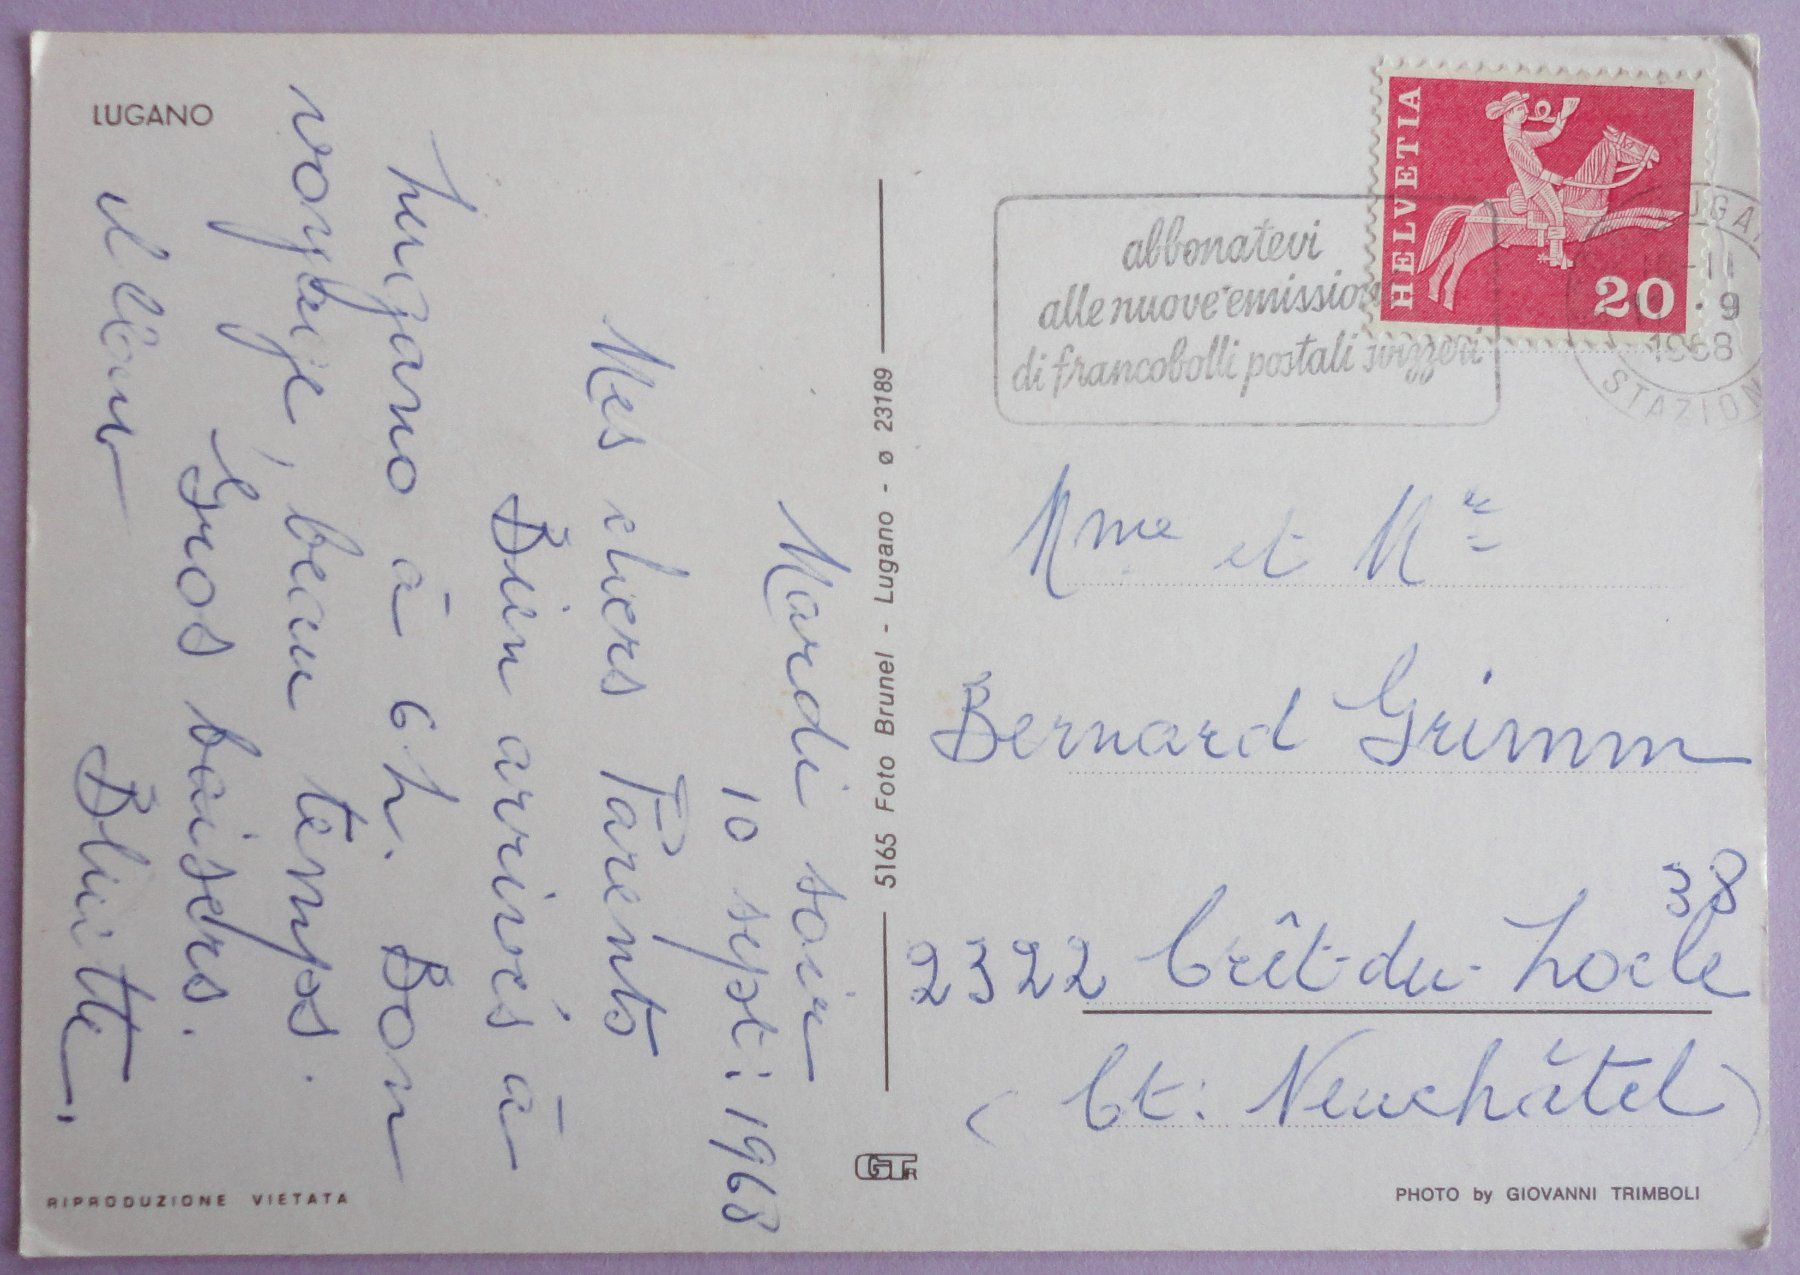 LUGANO
Mardi soir
10 sept: 1968
Mes chers Parents
Bien arrivés à
Lugano à 6 h. Bon
voyage, beau temps.
Gros baisers.
Bluette
RIPRODUZIONE VIETATA
5165 Foto Brunel - Lugano - ø 23189
GTR
HELVETIA
20
abbonatevi
alle nuove emissioni
di francobolli postali svizzeri
9
1968
STAZION
Mme et Mr
Bernard Grimm
38
2322 Crêt-du-Locle
(Ct: Neuchâtel)
PHOTO by GIOVANNI TRIMBOLI